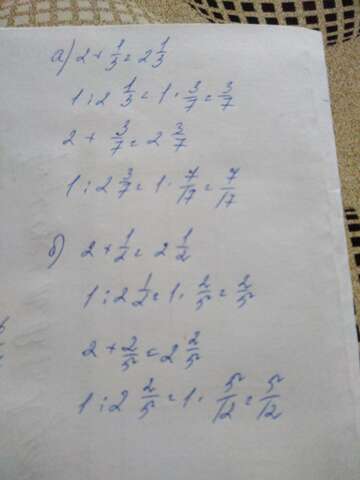 а) 2 + 1/3 = 2 1/3
1 : 2 1/3 = 1 · 3/7 = 3/7
2 + 3/7 = 2 3/7
1 : 2 3/7 = 1 · 7/17 = 7/17
б) 2 + 1/2 = 2 1/2
1 : 2 1/2 = 1 · 2/5 = 2/5
2 + 2/5 = 2 2/5
1 : 2 2/5 = 1 · 5/12 = 5/12